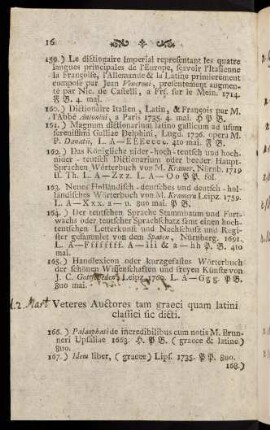 16
159.) Le dictionaire Imperial representant les quatre
langues principales de l'Europe, sçavoir l'Italienne
la Françoise, l'Allemande & la Latina primierement
composé par Jean Veneroni, presentement augmen-
té par Nic. de Castelli, a Frf. sur le Mein. 1714.
F B. 4. maj.
160.) Dictionaire Italien, Latin, & François par M.
l'Abbé Antonini, a Paris 1735. 4. maj. P B.
161.) Magnum dictionarium latino gallicum ad usum
serenissimi Galliae Delphini, Lugd. 1726. opera M.
P. Danetii, L. A—EEEecc. 4to maj. F B.
162.) Das Königliche nider-hoch-teutsch und hoch-
nider-teutsch Dictionarium oder beeder Haupt-
Sprachen Wörterbuch von M. Kramer, Nürnb. 1719
II. Th. L. A—Zzz. L. A—Oo PP. fol.
163.) Neues Holländisch-deutsches und deutsch-hol-
ländisches Wörterbuch von M. Kramern Leipz. 1759.
L. A—Xxx. L. A—
164.) Der teutschen Sprache Stammbaum und Fort-
wachs oder teutscher Sprachschatz samt einen hoch-
teutschen Letterkunst und Nachschuss und Regi-
ster gesammlet von dem Spaten, Nürnberg. 1691.
L. A—Ffffffff. A—Iii & a—hh P B. 4to
maj.
165.) Handlexicon oder kurzgefasstes Wörterbuch
der schönen Wissenschaften und freyen Künste von
J. C. Leipz. L. A—Ggg. P B.
8uo maj.
Mart Veteres Auctores tam graeci quam latini
classici sic dicti.
166.) Palaephati de incredibilibus cum notis M. Brun-
neri Upsaliae 1663. P B. (graece & latine)
8uo.
167.) Idem liber, (graece) Lips. 1735. P P. 8uo.
168.)